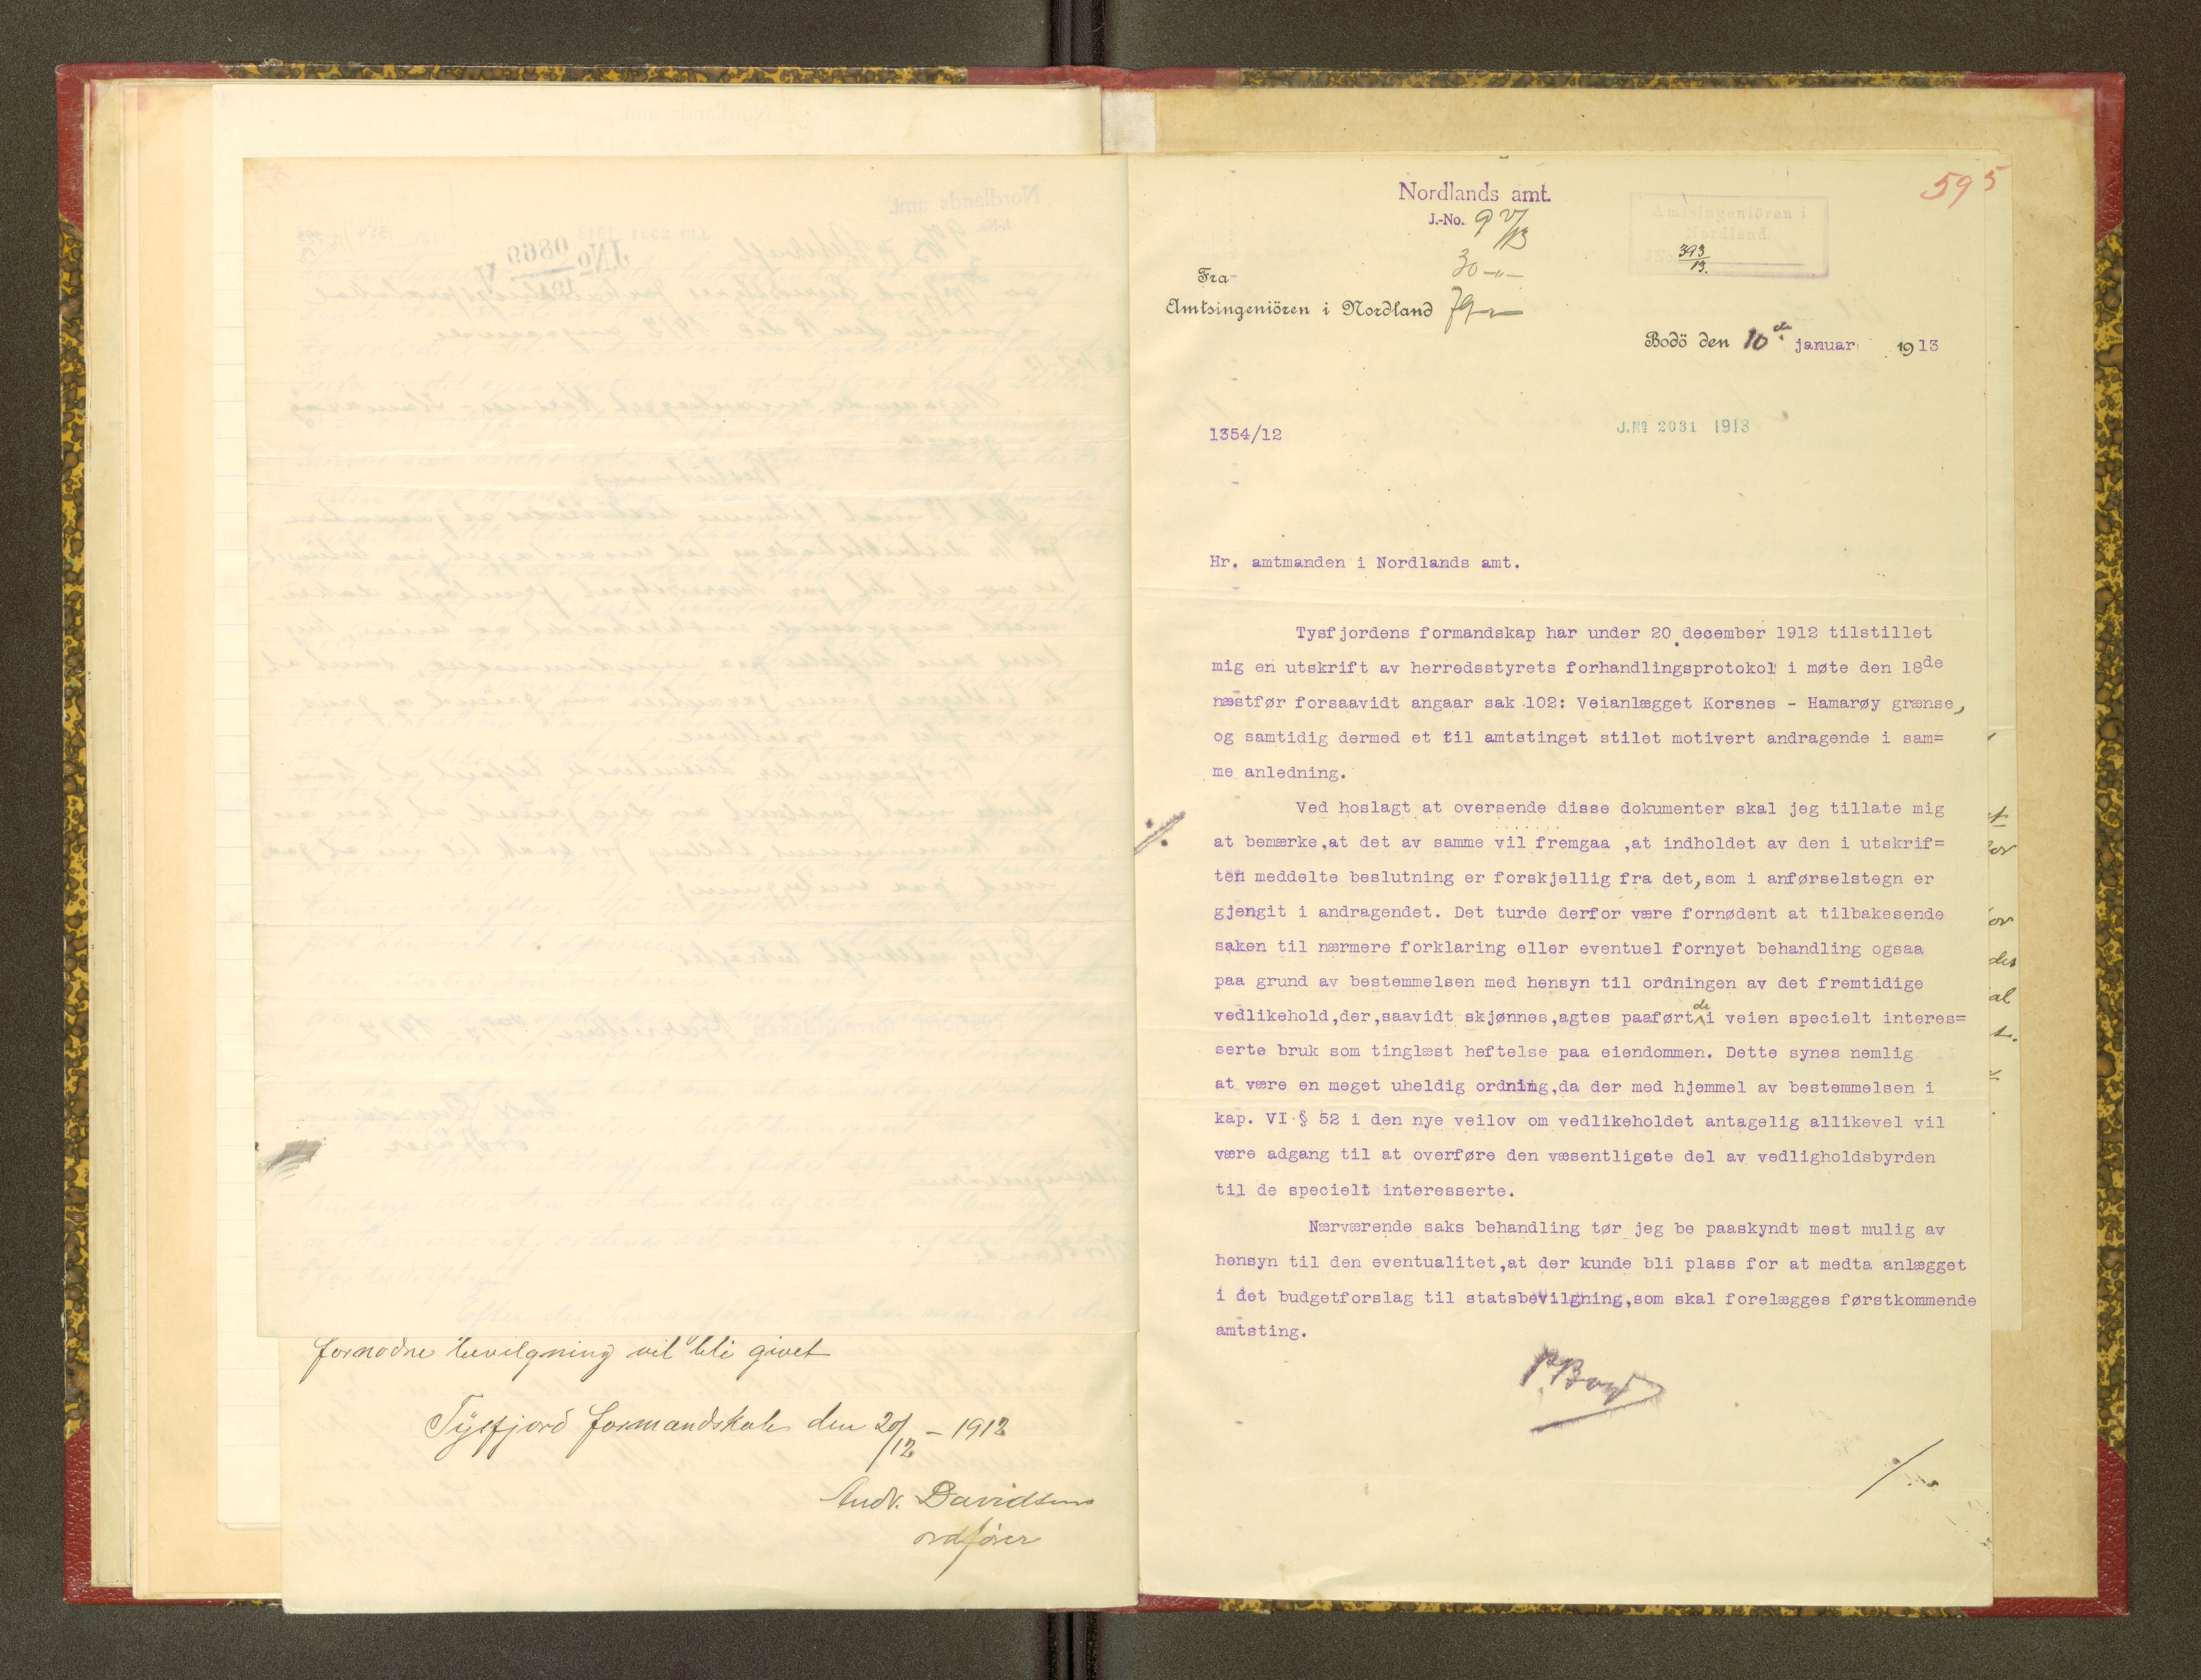 fornødne bevilgning vil bli givet
Tysfjord formandskab den 20/12 - 1912
Andr. Davidsen
ordfører
595
Nordlands amt.
J.-No.
Amtsingeniören i
Nordland.
393
13.
30 -"-
Fra
Amtsingeniören i Nordland
Bodö den 10de januar 1913
1354/12
J.No 2031 1913
Hr. amtmanden i Nordlands amt.
Tysfjordens formandskap har under 20 december 1912 tilstillet
mig en utskrift av herredsstyrets forhandlingsprotokol i møte den 18de
næstfør forsaavidt angaar sak 102: Veianlægget Korsnes - Hamarøy grænse,
og samtidig dermed et til amtstinget stilet motivert andragende i sam=
me anledning.
Ved hoslagt at oversende disse dokumenter skal jeg tillate mig
at bemærke,at det av samme vil fremgaa ,at indholdet av den i utskrif=
ten meddelte beslutning er forskjellig fra det,som i anførselstegn er
gjengit i andragendet. Det turde derfor være fornødent at tilbakesende
saken til nærmere forklaring eller eventuel fornyet behandling ogsaa
paa grund av bestemmelsen med hensyn til ordningen av det fremtidige
vedlikehold,der,saavidt skjønnes,agtes paaført de i veien specielt interes=
serte bruk som tinglæst heftelse paa eiendommen. Dette synes nemlig
at være en meget uheldig ordning,da der med hjemmel av bestemmelsen i
kap. VI § 52 i den nye veilov om vedlikeholdet antagelig allikevel vil
være adgang til at overføre den væsentligste del av vedligholdsbyrden
til de specielt interesserte.
Nærværende saks behandling tør jeg be paaskyndt mest mulig av
hensyn til den eventualitet,at der kunde bli plass for at medta anlægget
i det budgetforslag til statsbevilgning,som skal forelægges førstkommende
amtsting.